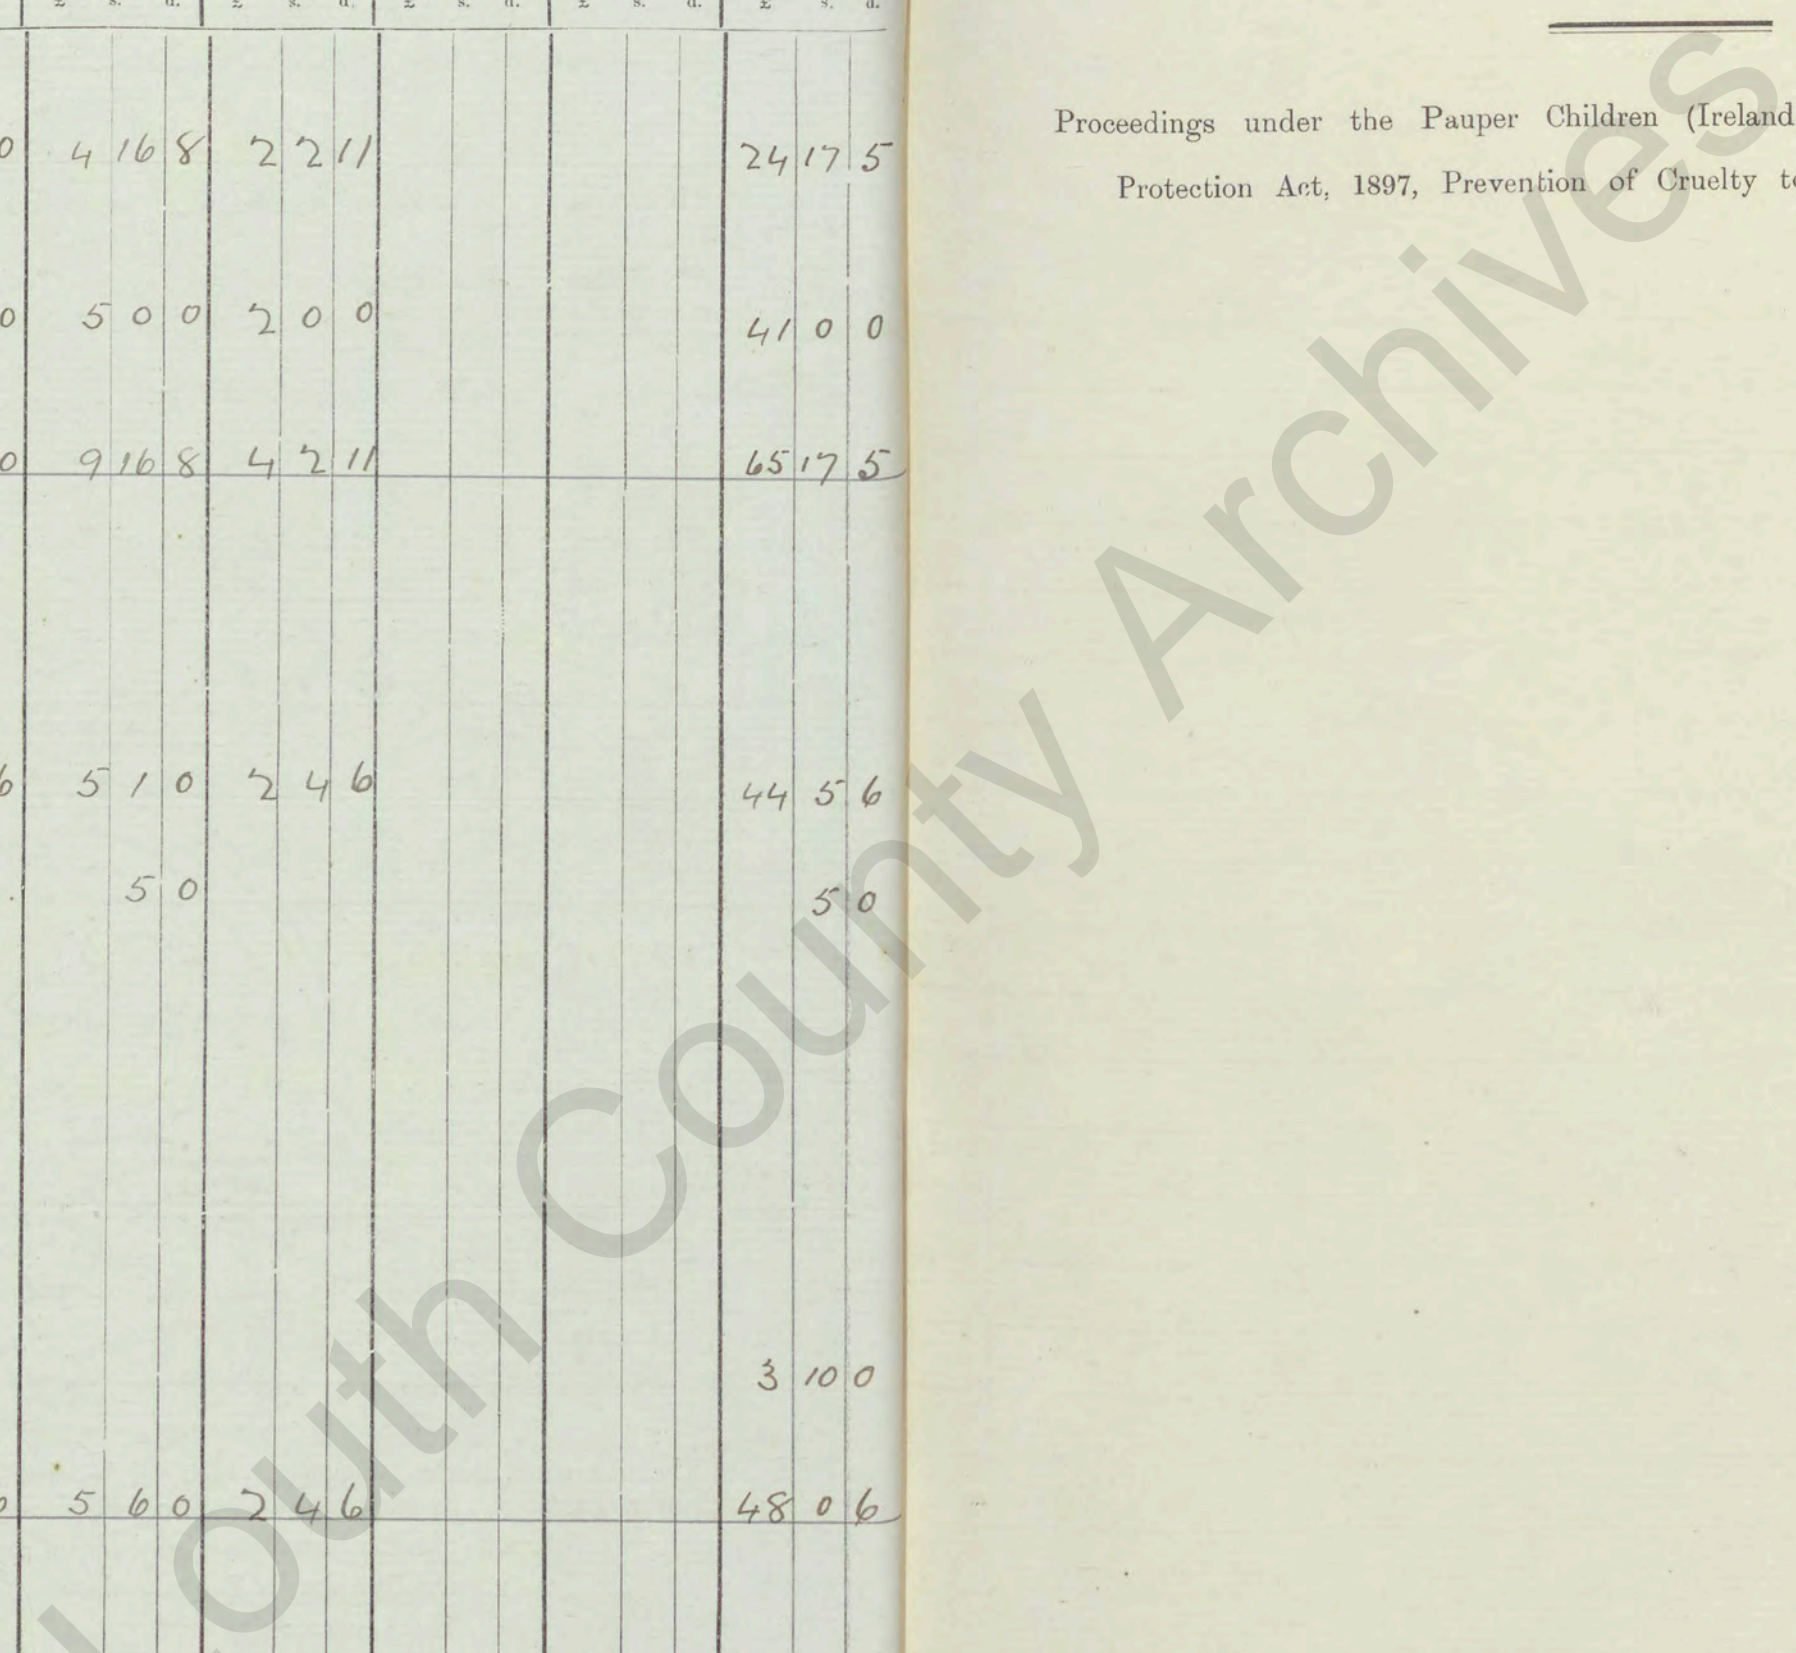 £ s. d. £ s. d. £ s. d. £ s. d. £ s. d.
0 4 16 8 2 2 11 24 17 5
0 5 0 0 2 0 0 41 0 0
0 9 16 8 4 2 11 65 17 5
6 5 1 0 2 4 6 44 5 6
5 0 5 0
3 10 0
5 6 0 2 4 6 48 0 6
Proceedings under the Pauper Children (Ireland
Protection Act, 1897, Prevention of Cruelty to
Louth County Archives